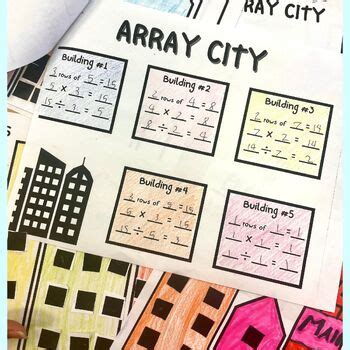 RAY CITY
ARRAY CITY
Building #1
3 rows of 5 = 15
5 x 3 = 15
15 ÷ 3 = 5
Building #2
2 rows of 4 = 8
4 x 2 = 8
8 ÷ 2 = 4
Building #3
2 rows of 7 = 14
7 x 2 = 14
14 ÷ 7 = 2
Building #4
3 rows of 5 = 15
5 x 3 = 15
15 ÷ 5 = 3
Building #5
1 rows of 1 = 1
1 x 1 = 1
1 ÷ 1 = 1